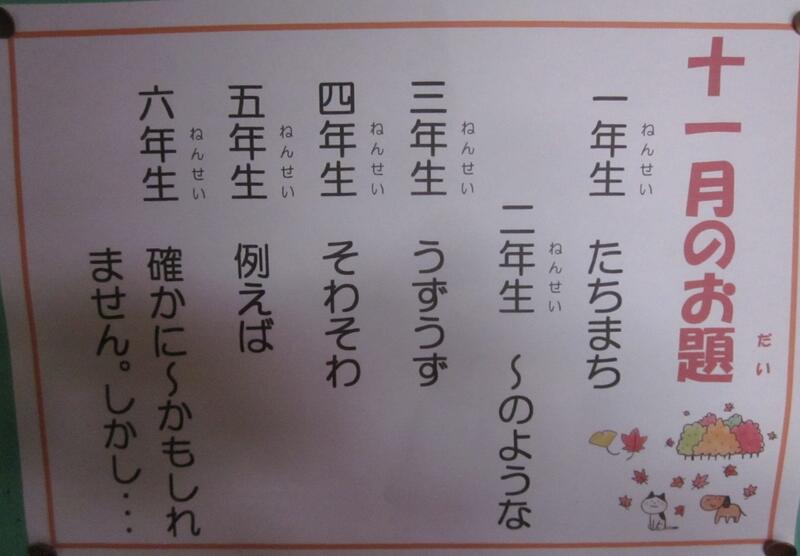 十一月のお題
だい
一年生 たちまち
ねんせい
二年生 ~のような
ねんせい
三年生 うずうず
ねんせい
四年生 そわそわ
ねんせい
五年生 例えば
ねんせい
六年生 確かに~かもしれ
ねんせい
ません。しかし・・・